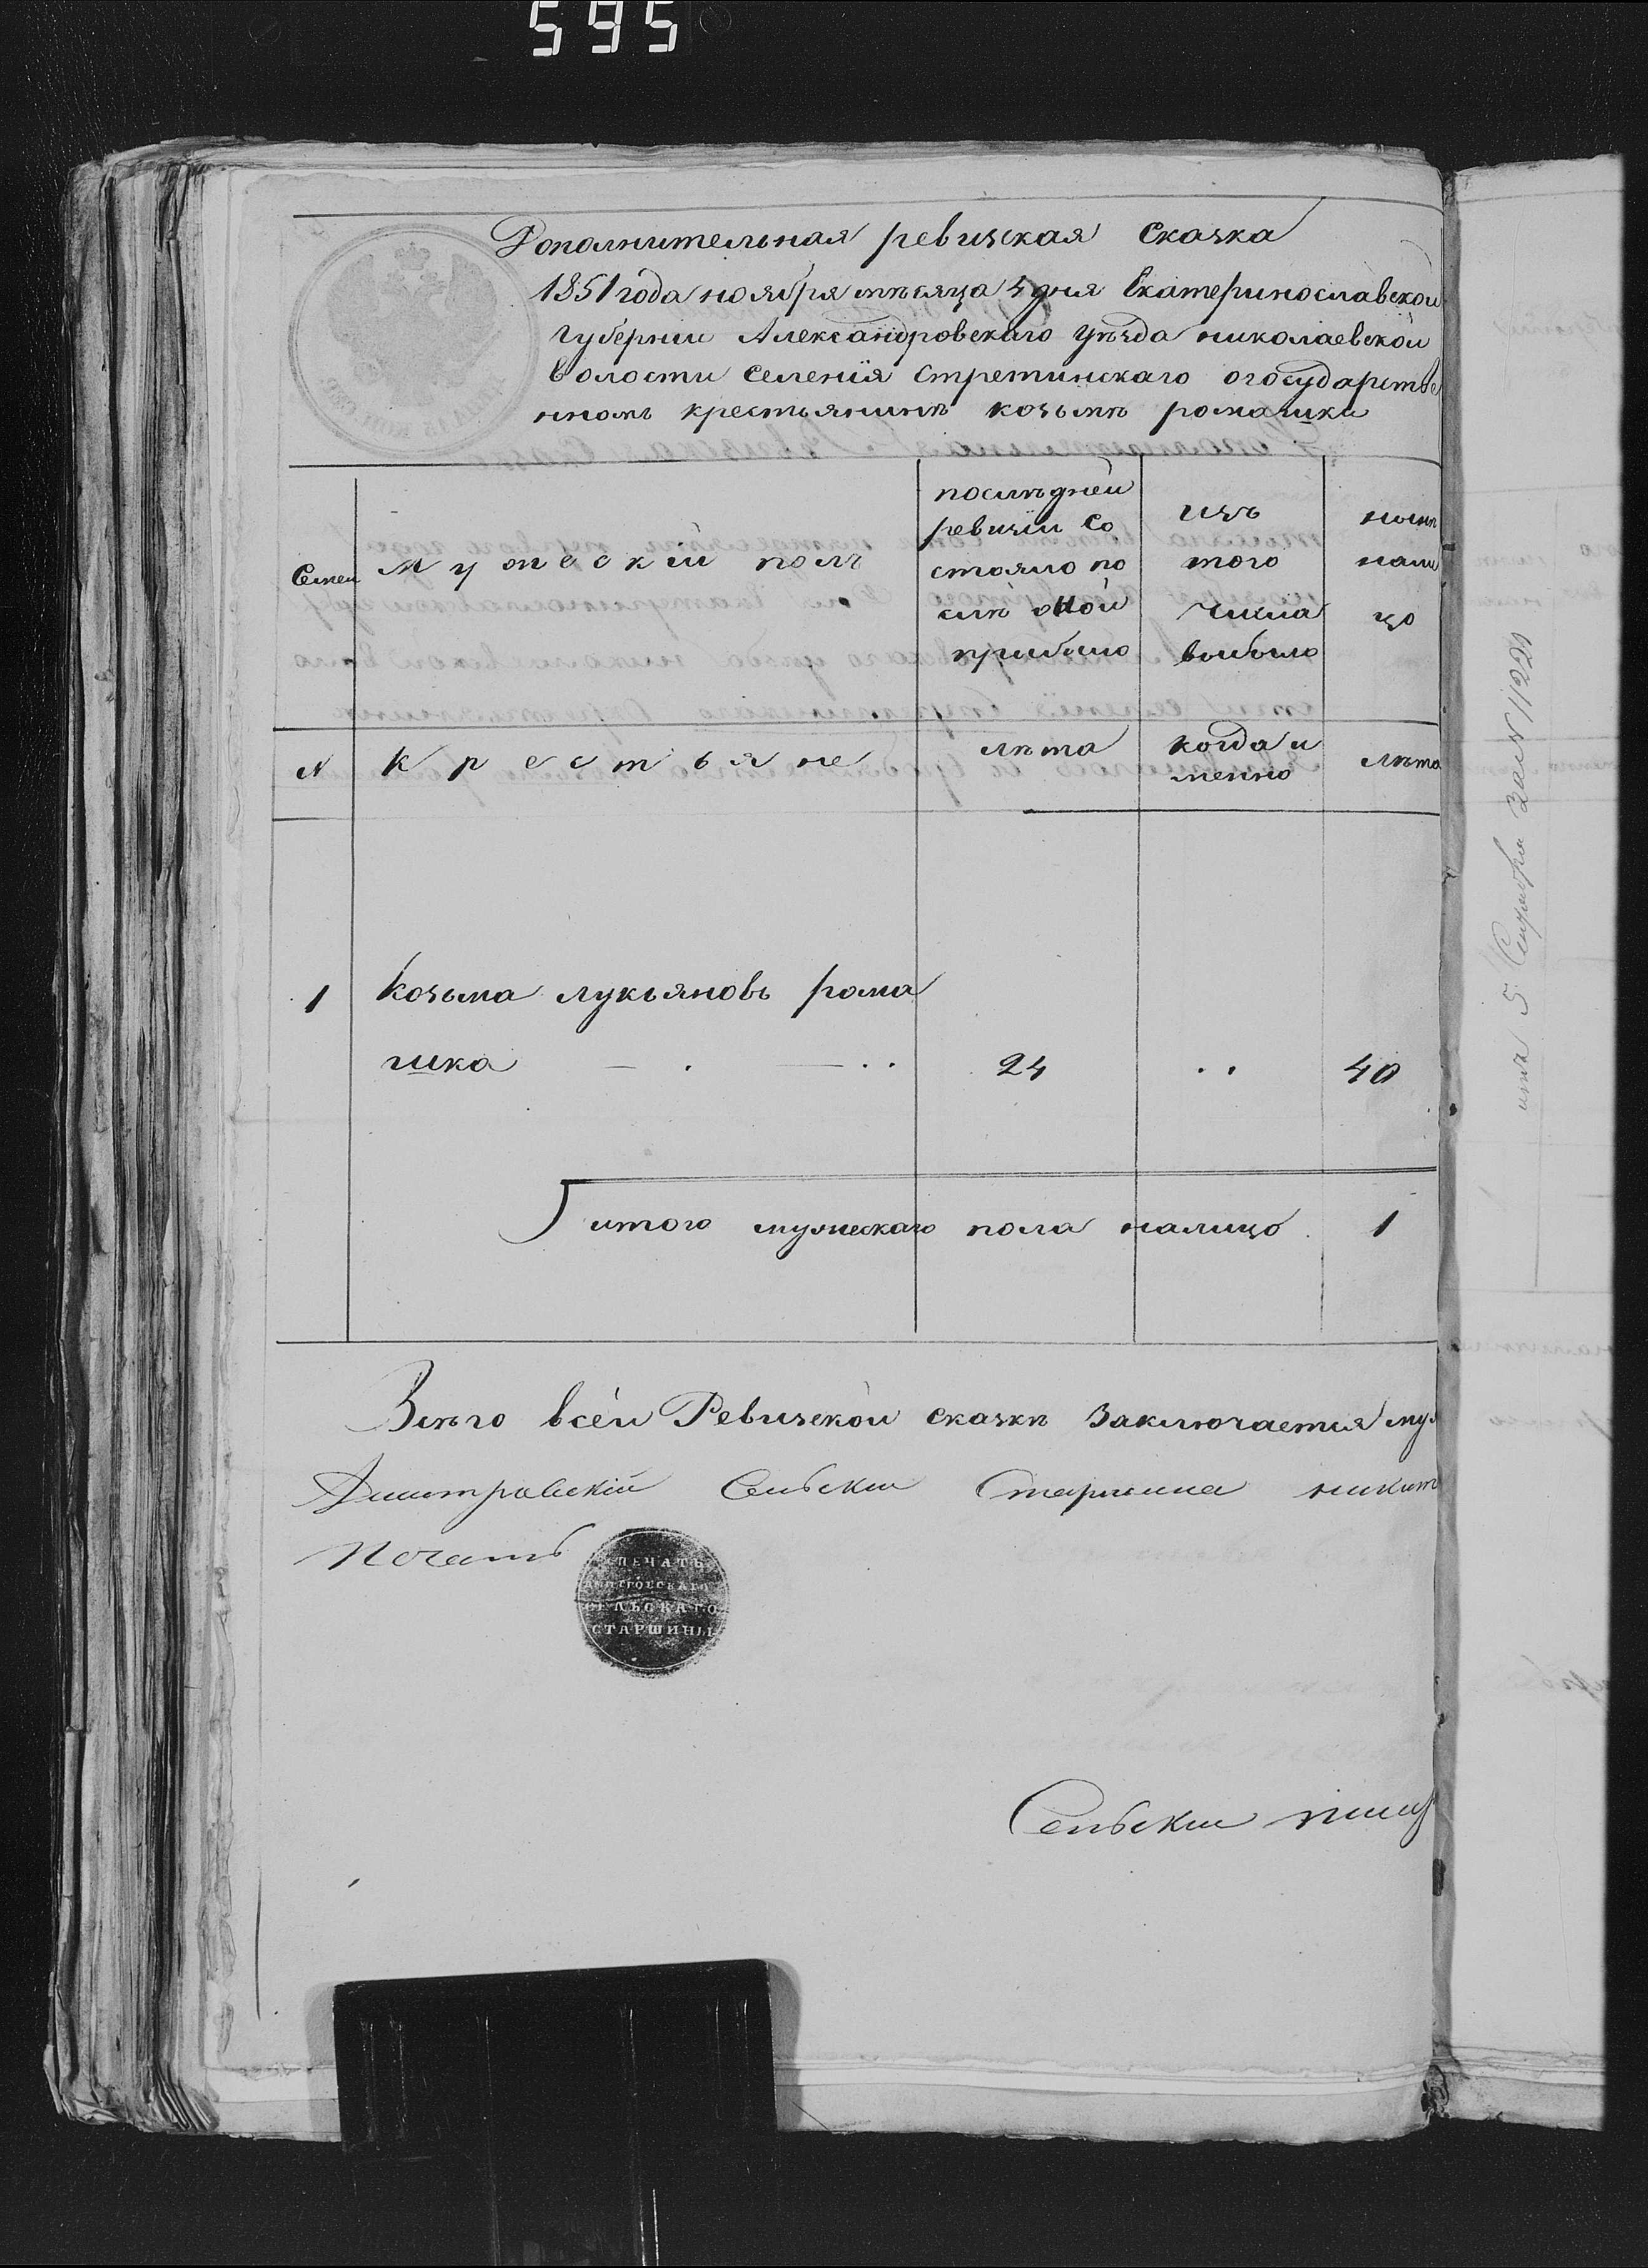 595
Дополнительная ревизская Сказка
1851 года ноября мѣсяца 4 дня Екатеринославской
Губерніи Александровскаго уѣзда николаевской
волости Селенія Стретинскаго огосударстве
нномъ крестьянинѣ козьмѣ ромашки
Семеи
Мужескій полъ
послѣдней
ревизіи Со
стояло по
слѣ оной
прибыло
изъ
того
числа
выбыло
нынѣ
нали
цо
N
крестьяне
лѣта
когда и
менно
лѣта
1 Козьма лукьяновъ рома
шка 24 40
итого мужескаго пола налицо 1
Всего всей Ревизской сказкѣ Заключается му
Дмитровскій Сельскии Старшина никит
Печать
ПЕЧАТЬ
ДМИТРОВСКАГО
СЕЛЬСКАГО
СТАРШИНЫ
Сельскии писар
5 Сентября За N 11221